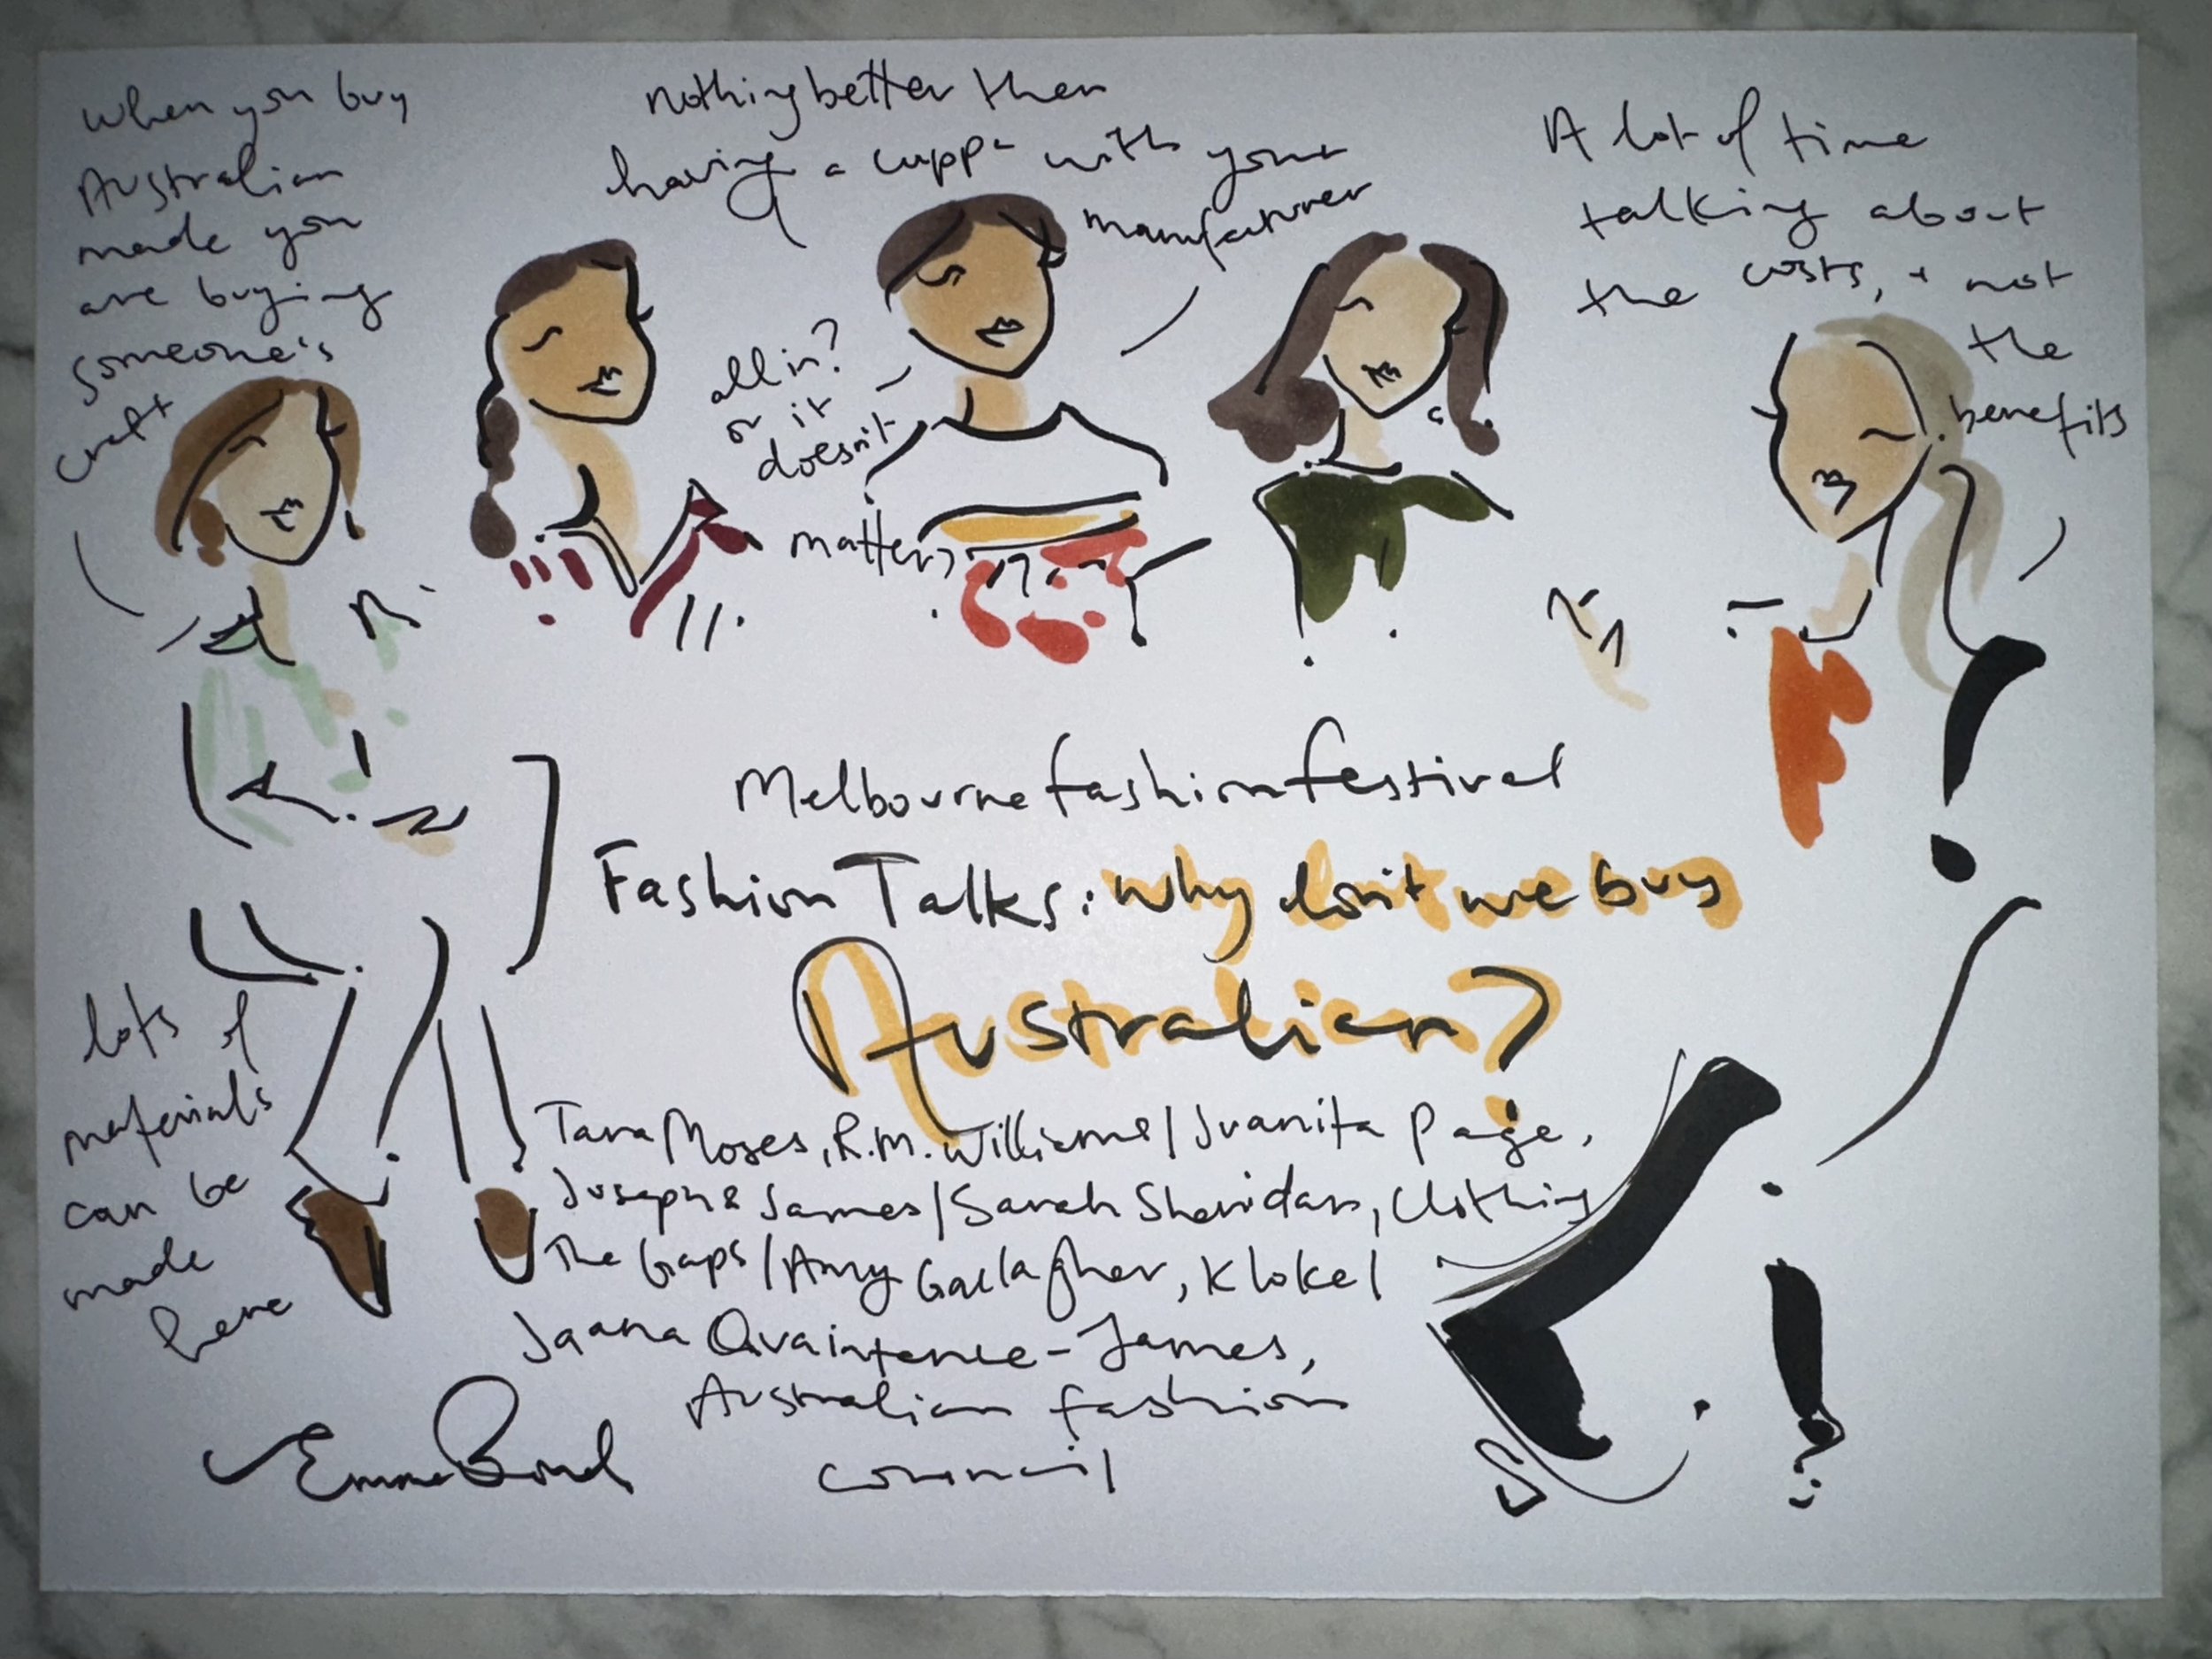 when you buy
Australian
made you
are buying
someone's
craft
nothing better then
having a cuppa with your
manufacturer
all in?
or it
doesn't
matter?
A lot of time
talking about
the costs, + not
the
benefits
Melbourne fashion festival
Fashion Talks: why don't we buy
Australian?
lots of
materials
can be
made
here
Tara Moses, R.M. Williams / Juanita Page,
Joseph & James / Sarah Sheridan, Clothing
The Gaps / Amy Gallagher, Kloke /
Jaana Quaintance-James,
Australian fashion
council
Emma Bond